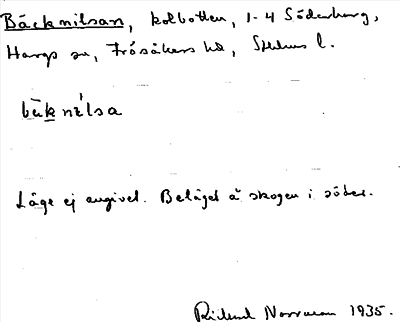 Bäcknilsan, kolbotten, 1-4 Söderburg,
Hargs sn, Frösåkers hd, Sthlms l.
bäknìlsa
Läge ej angivet. Beläget å skogen i söder.
Rikard Norrman 1935.